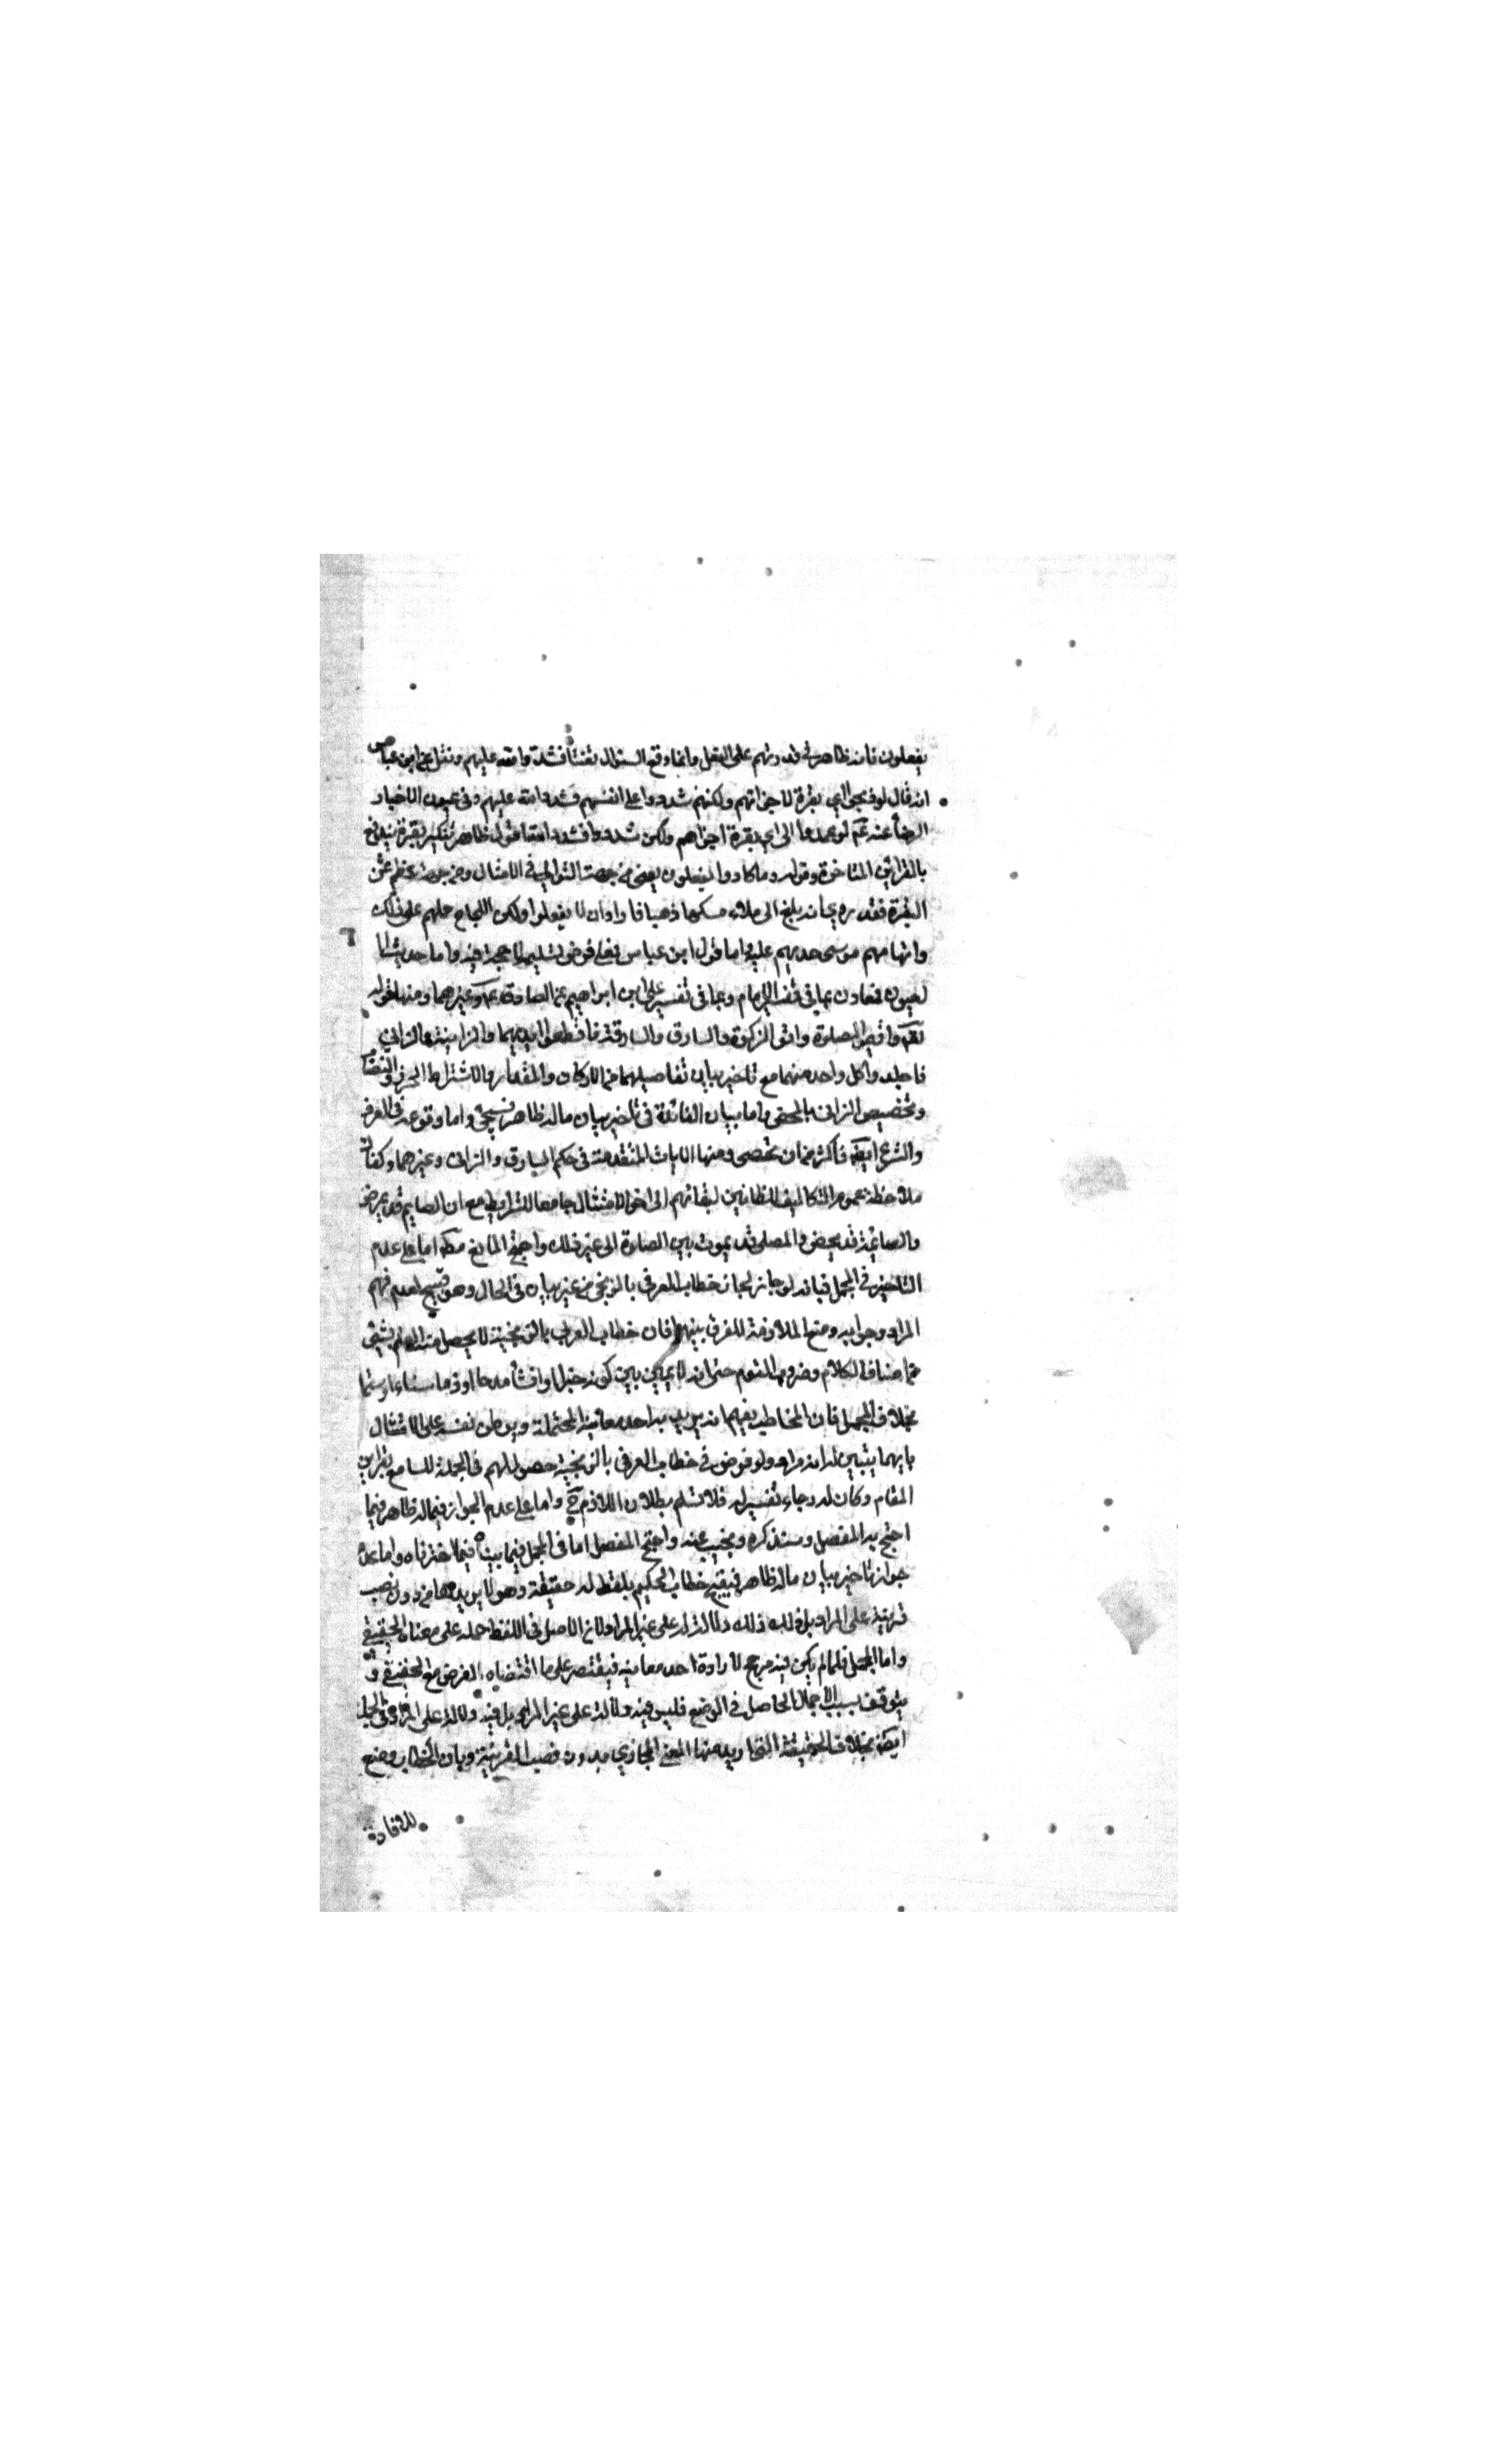 يفعلون فانه ظاهر في قدرتهم على الفعل وانما وقع السؤال تعنتا فشدد الله عليهم ونقل عن ابن عباس
انه قال لو ذبحوا اي بقرة لاجزاتهم ولكنهم شددوا على انفسهم فشدد الله عليهم وفي عيون الاخبار
الرضا عنه ع لو عمدوا الى اي بقرة اجزاهم ولكن شددوا فشدد الله قلت ظاهر تنكير بقرة يندفع
بالقراين المتاخرة وقوله وما كادوا يفعلون يعني من جهة التواني في الامتثال ومن جهة عظم ثمن
البقرة فقد روي انه بلغ الى ملاء مسكها ذهبا فارادوا ان لا يفعلوا ولكن اللجاج حملهم على ذلك
واتهامهم موسى حديهم عليه واما قول ابن عباس فعلى فرض تسليمه لا حجية فيه واما حديث
العيون فمعارض بما في تفسير الامام وبما في تفسير علي ابن ابراهيم عن الصادق ع وغيرهما ومنها قوله
تعالى واقيموا الصلوة واتوا الزكوة والسارق والسارقة فاقطعوا ايديهما والزانية والزاني
فاجلدوا كل واحد منهما مع تاخير بيان تفاصيلهما من الاركان والمقدار والاشتراط الحرز والنصاب
وتخصيص الزاني بالمحصن واما بيان الفائدة في تاخير بيان ماله ظاهر فسيجئ واما وقوعه في العرف
والشرع ايضا فاكثر من ان تحصى فمنها الايات المتقدمة في حكم السارق والزاني وغيرهما وكفاك
ملاحظة عموم التكاليف للظانين لبقائهم الى اخر الامتثال جامعا للشرايط مع ان الصايم قد يمرض
والصائمة قد يحيض والمصلي قد يموت بين الصلوة الى غير ذلك واحتج المانع مط اما على عدم
التاخير في المجمل فبانه لو جاز لجاز خطاب العربي بالزنجي من غير بيان في الحال وهو قبيح لعدم فهم
المراد وجوابه ومنع الملازمة للفرق بينهما فان خطاب العربي بالزنجية لا يحصل منه العلم بشئ
من اصناف الكلام وضروب القوم حتى انه لا يميز بين كونه خبرا وانشاء مدحا او ذما سناء او شتما
بخلاف المجمل فان المخاطب يفهم انه يريد به احد معانيه المحتملة ويوطن نفسه على الامتثال
بايهما يتبين له انه مراد ولو فرض في خطاب العربي بالزنجية حصول لهم في الجملة للسامع بقراين
المقام وكان له رجاء تفسير له فلا نسلم بطلان اللازم ح واما على عدم الجواز فيما له ظاهر فبما
احتج به المفصل وسنذكره ونجيب عنه واحتج المفصل اما في المجمل فبما بيناه فيما اخترناه واما عدم
جواز تاخير بيان ماله ظاهر فبقبح خطاب الحكيم بلفظ له حقيقة وهو لا يريدها من دون نصب
قرينة على المراد بل ذلك دلالة له على غير المراد لان الاصل في اللفظ حمله على معناه الحقيقي
واما المجمل فلما لم يكن فيه مرجح لارادة احد معانيه فيقتصر على ما اقتضاه الفرض من الحقيقي و
يتوقف بسبب الاجمال الحاصل في الوضع فليس فيه دلالة على غير المراد بل فيه دلالة على المراد في الجملة
ايضا بخلاف الحقيقة التي اريد منها المعنى المجازي بدون نصب القرينة وبان الخطاب وضع
للافادة